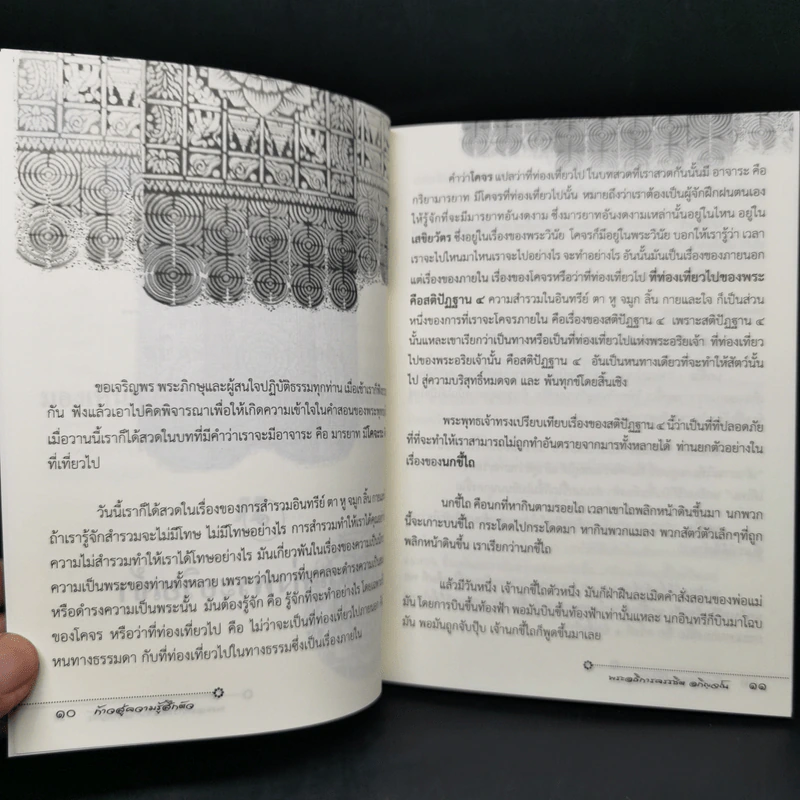 ขอเจริญพร พระภิกษุและผู้สนใจปฏิบัติธรรมทุกท่าน เมื่อเช้าเราก็
กัน ฟังแล้วเอาไปคิดพิจารณาเพื่อให้เกิดความเข้าใจในคำสอนของ
เมื่อวานนี้เราก็ได้สวดในบทที่มีคำว่าเราจะมีอาจาระ คือ มารยาท
ที่เที่ยวไป
วันนี้เราก็ได้สวดในเรื่องของการสำรวมอินทรีย์ ตา หู จมูก ลิ้น
ถ้าเรารู้จักสำรวมจะไม่มีโทษ ไม่มีโทษอย่างไร การสำรวมทำให้เราได้
ความไม่สำรวมทำให้เราได้โทษอย่างไร มันเกี่ยวพันในเรื่องของความเป็น
ความเป็นพระของท่านทั้งหลาย เพราะว่าในการที่บุคคลจะดำรงความเป็น
หรือดำรงความเป็นพระนั้น มันต้องรู้จัก คือ รู้จักที่จะทำอย่างไร
ของโคจร หรือว่าที่ท่องเที่ยวไป คือ ไม่ว่าจะเป็นที่ท่องเที่ยวไปภายนอก
หนทางธรรมดา กับที่ท่องเที่ยวไปในทางธรรมซึ่งเป็นเรื่องภายใน
๑๐ ก้าวสู่ความรู้สึกตัว
คำว่าโคจร แปลว่าที่ท่องเที่ยวไป ในบทสวดที่เราสวดกันนั้นมี อาจาระ คือ
กริยามารยาท มีโคจรที่ท่องเที่ยวไปนั้น หมายถึงว่าเราต้องเป็นผู้จักฝึกฝนตนเอง
ให้รู้จักที่จะมีมารยาทอันงดงาม ซึ่งมารยาทอันงดงามเหล่านั้นอยู่ในไหน อยู่ใน
เสขิยวัตร ซึ่งอยู่ในเรื่องของพระวินัย โคจรก็มีอยู่ในพระวินัย บอกให้เรารู้ว่า เวลา
เราจะไปไหนมาไหนเราจะไปอย่างไร จะทำอย่างไร อันนั้นมันเป็นเรื่องของภายนอก
แต่เรื่องของภายใน เรื่องของโคจรหรือว่าที่ท่องเที่ยวไป ที่ท่องเที่ยวไปของพระ
คือสติปัฏฐาน ๔ ความสำรวมในอินทรีย์ ตา หู จมูก ลิ้น กายและใจ ก็เป็นส่วน
หนึ่งของการที่เราจะโคจรภายใน คือเรื่องของสติปัฏฐาน ๔ เพราะสติปัฏฐาน ๔
นั้นแหละเขาเรียกว่าเป็นทางหรือเป็นที่ท่องเที่ยวไปแห่งพระอริยเจ้า ที่ท่องเที่ยว
ไปของพระอริยเจ้านั้น คือสติปัฏฐาน ๔ อันเป็นหนทางเดียวที่จะทำให้สัตว์นั้น
ไป สู่ความบริสุทธิ์หมดจด และ พ้นทุกข์โดยสิ้นเชิง
พระพุทธเจ้าทรงเปรียบเทียบเรื่องของสติปัฏฐาน ๔ นี้ว่าเป็นที่ที่ปลอดภัย
ที่ที่จะทำให้เราสามารถไม่ถูกทำอันตรายจากมารทั้งหลายได้ ท่านยกตัวอย่างใน
เรื่องของนกขี้ไถ
นกขี้ไถ คือนกที่หากินตามรอยไถ เวลาเขาไถพลิกหน้าดินขึ้นมา นกพวก
นี้จะเกาะบนขี้ไถ กระโดดไปกระโดดมา หากินพวกแมลง พวกสัตว์ตัวเล็กๆที่ถูก
พลิกหน้าดินขึ้น เราเรียกว่านกขี้ไถ
แล้วมีวันหนึ่ง เจ้านกขี้ไถตัวหนึ่ง มันก็ฝ่าฝืนละเมิดคำสั่งสอนของพ่อแม่
มัน โดยการบินขึ้นท้องฟ้า พอมันบินขึ้นท้องฟ้าเท่านั้นแหละ นกอินทรีก็บินมาโฉบ
มัน พอมันถูกจับปุ๊บ เจ้านกขี้ไถก็พูดขึ้นมาเลย
๑๑